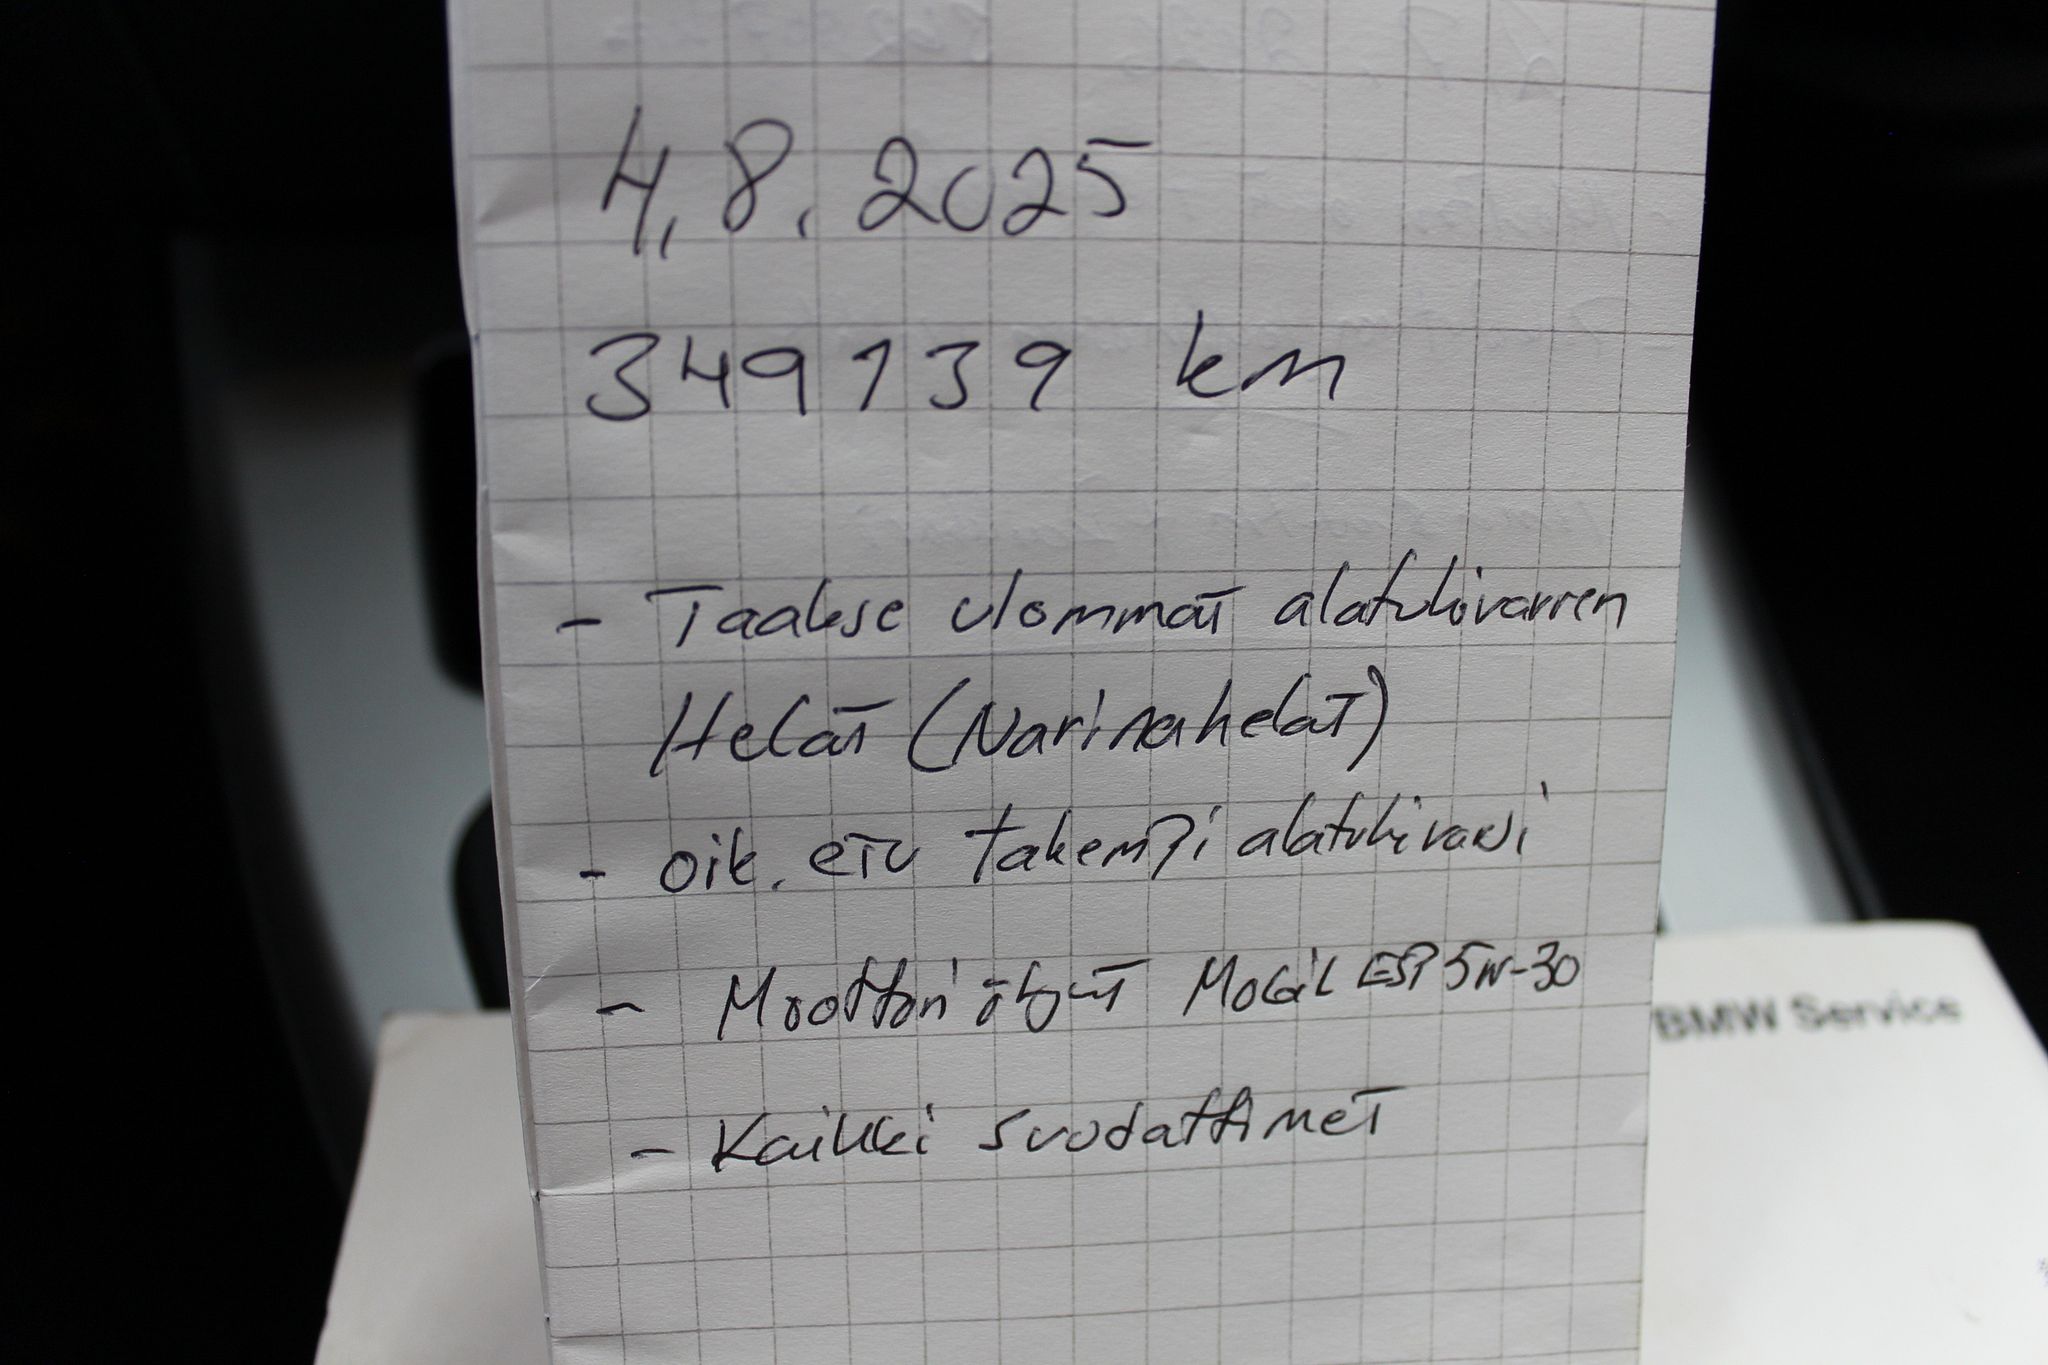 4.8.2025
349139 km
- Taakse ulommat alatukivarren
Helat (Narinahelat)
- oik. etu takempi alatukivarsi
- Moottoriöljyt Mobil ESP 5W-30
- Kaikki suodattimet
BMW Service